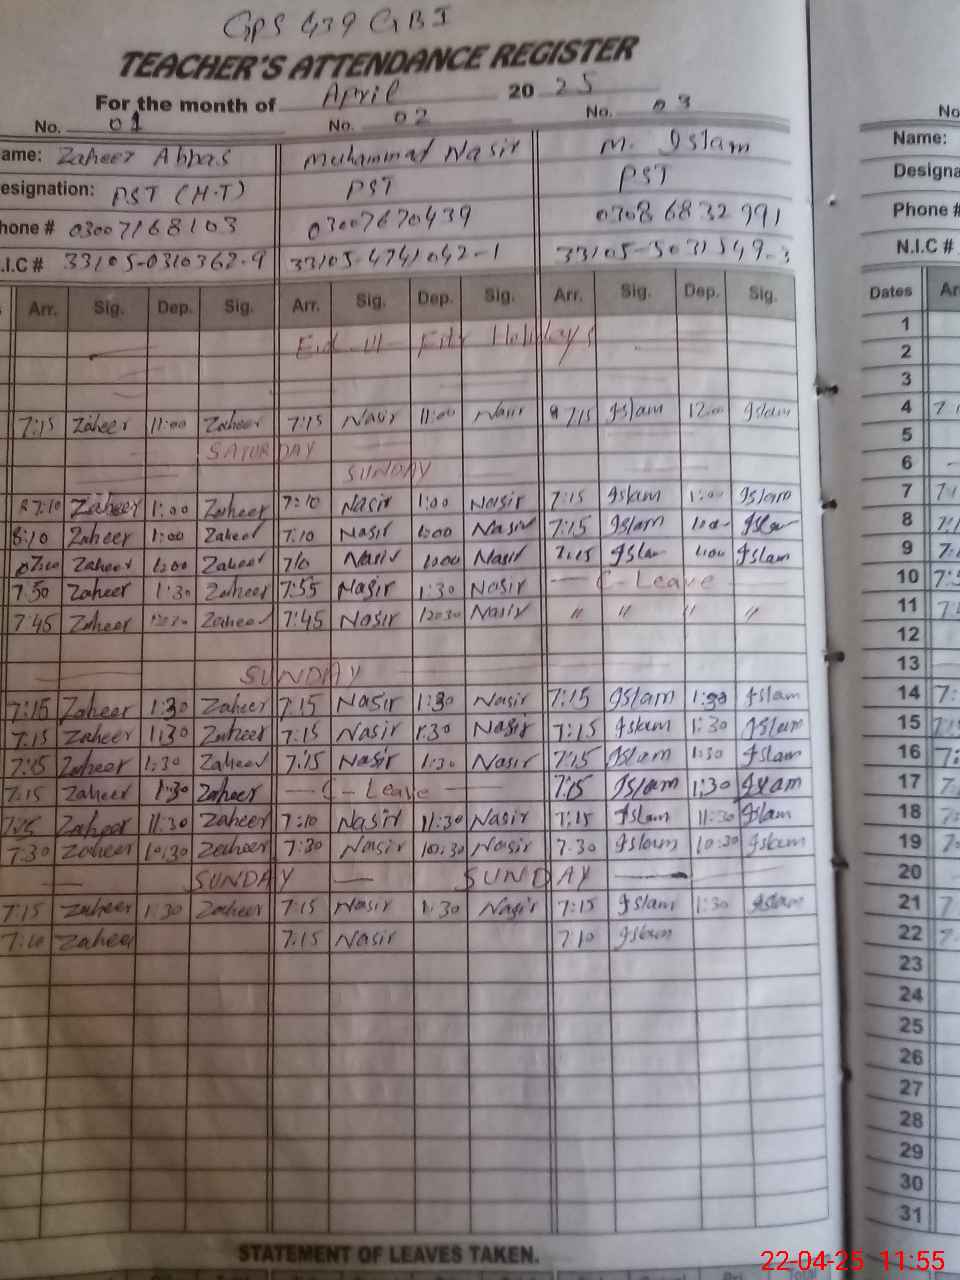 GPS 439 GB I
TEACHER'S ATTENDANCE REGISTER
For the month of April 2025
No. 01 No. 02 No. 03 No
ame: Zaheer Abbas Muhammad Nasir M. Islam Name:
esignation: PST (H.T) PST PST Designa
hone # 03007168103 03007670439 03086832991 Phone #
.I.C # 33105-0310362-9 33105-4741042-1 33105-5031549-3 N.I.C #
Arr. Sig. Dep. Sig. Arr. Sig. Dep. Sig. Arr. Sig. Dep. Sig. Dates Ar
Eid-ul-Fitr Holidays 1
2
3
7:15 Zaheer 11:00 Zaheer 7:15 Nasir 11:00 Nasir 7:15 Islam 12:00 Islam 4
SATURDAY 5
SUNDAY 6
7:10 Zaheer 1:00 Zaheer 7:10 Nasir 1:00 Nasir 7:15 Islam 1:00 Islam 7
8:10 Zaheer 1:00 Zaheer 7:10 Nasir 1:00 Nasir 7:15 Islam 1:00 Islam 8
Zaheer 1:00 Zaheer 7:10 Nasir 1:00 Nasir 7:15 Islam 1:00 Islam 9
7:50 Zaheer 1:30 Zaheer 7:55 Nasir 1:30 Nasir — C-Leave — 10
7:45 Zaheer Zaheer 7:45 Nasir 12:30 Nasir " " " " 11
12
SUNDAY 13
7:15 Zaheer 1:30 Zaheer 7:15 Nasir 1:30 Nasir 7:15 Islam 1:30 Islam 14
7:15 Zaheer 1:30 Zaheer 7:15 Nasir 1:30 Nasir 7:15 Islam 1:30 Islam 15
7:15 Zaheer 1:30 Zaheer 7:15 Nasir 1:30 Nasir 7:15 Islam 1:30 Islam 16
7:15 Zaheer 1:30 Zaheer — C-Leave — 7:15 Islam 1:30 Islam 17
7:15 Zaheer 11:30 Zaheer 7:10 Nasir 11:30 Nasir 7:15 Islam 11:30 Islam 18
7:30 Zaheer 10:30 Zaheer 7:30 Nasir 10:30 Nasir 7:30 Islam 10:30 Islam 19
— SUNDAY — SUNDAY — 20
7:15 Zaheer 1:30 Zaheer 7:15 Nasir 1:30 Nasir 7:15 Islam 1:30 Islam 21
7:10 Zaheer 7:15 Nasir 7:10 Islam 22
23
24
25
26
27
28
29
30
31
STATEMENT OF LEAVES TAKEN.
22-04-25 11:55